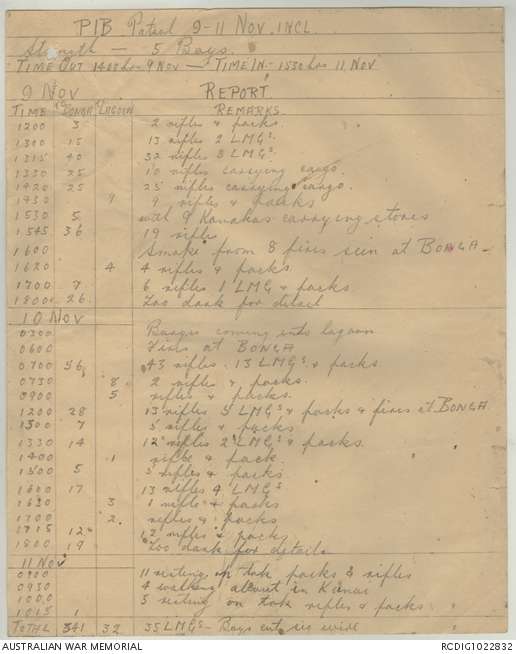 PIB Patrol 9-11 Nov. INCL.
Strength — 5 Boys.
TIME OUT 1400 hrs 9 Nov — TIME IN - 1530 hrs 11 Nov
9 Nov REPORT
TIME TO BONGA LAGOON REMARKS.
1200 3 2 rifles & packs.
1300 15 13 rifles 2 LMGs.
1315 40 32 rifles 8 LMGs.
1330 25 10 rifles carrying cargo.
1420 25 25 rifles carrying cargo.
1430 9 9 rifles & packs
1530 5 with 9 Kanakas carrying stores
1545 36 19 rifles
1600 Smoke from 8 fires seen at BONGA
1620 4 4 rifles & packs
1700 7 6 rifles 1 LMG & packs
1800 26 Too dark for detail
10 Nov
0300 Barges coming into lagoon
0600 Fires at BONGA
0700 56 43 rifles. 13 LMGs & packs
0730 8 2 rifles & packs.
0900 5 rifles & packs.
1200 28 13 rifles 5 LMGs & packs & fires at BONGA
1300 7 5 rifles & packs
1330 14 12 rifles 2 LMGs & packs
1400 1 rifle & pack
1500 5 5 rifles & packs
1600 17 13 rifles 4 LMGs.
1630 3 1 rifle & packs
1700 2 rifles & packs
1715 12 12 rifles & packs
1800 19 Too dark for details
11 Nov
0900 11 resting on tok packs & rifles
0930 4 walking about in Kunai
1000 5 resting on tok rifles & packs
1015 1
TOTAL 341 32 35 LMGs - Boys cut sic wide
AUSTRALIAN WAR MEMORIAL RCDIG1022832